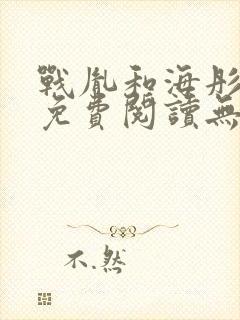 戰胤和海彤
免費閱讀無
不.然